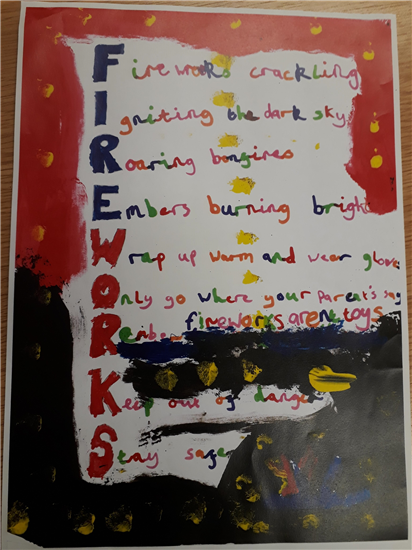 Fireworks crackling
Igniting the dark sky
Roaring bonfires
Embers burning bright
Wrap up warm and wear gloves
Only go where your Parent's say
Remember fireworks arent toys
Keep out of danger
Stay safe